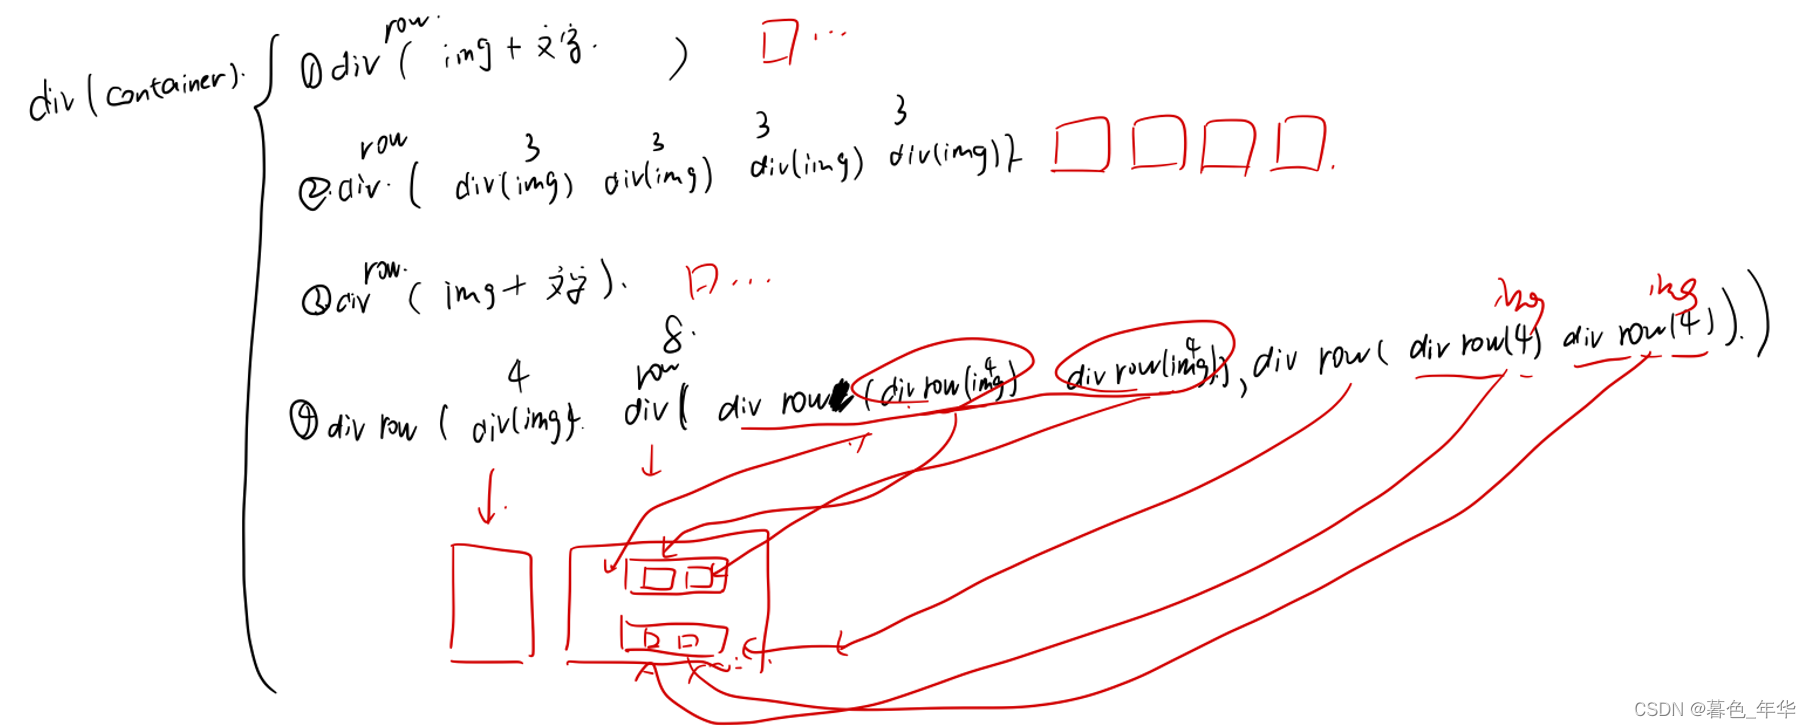 div(container).
row.
①div( img + 文字. )
...
row 3 3 3 3
②.div.( div(img) div(img) div(img) div(img) )
row.
③div( img + 文字 ).
...
4 row 8. 4 4 img img
④div row ( div(img). div( div row (div row(img) div row(img)), div row( div row(4) div row(4) ). )
CSDN @暮色_年华